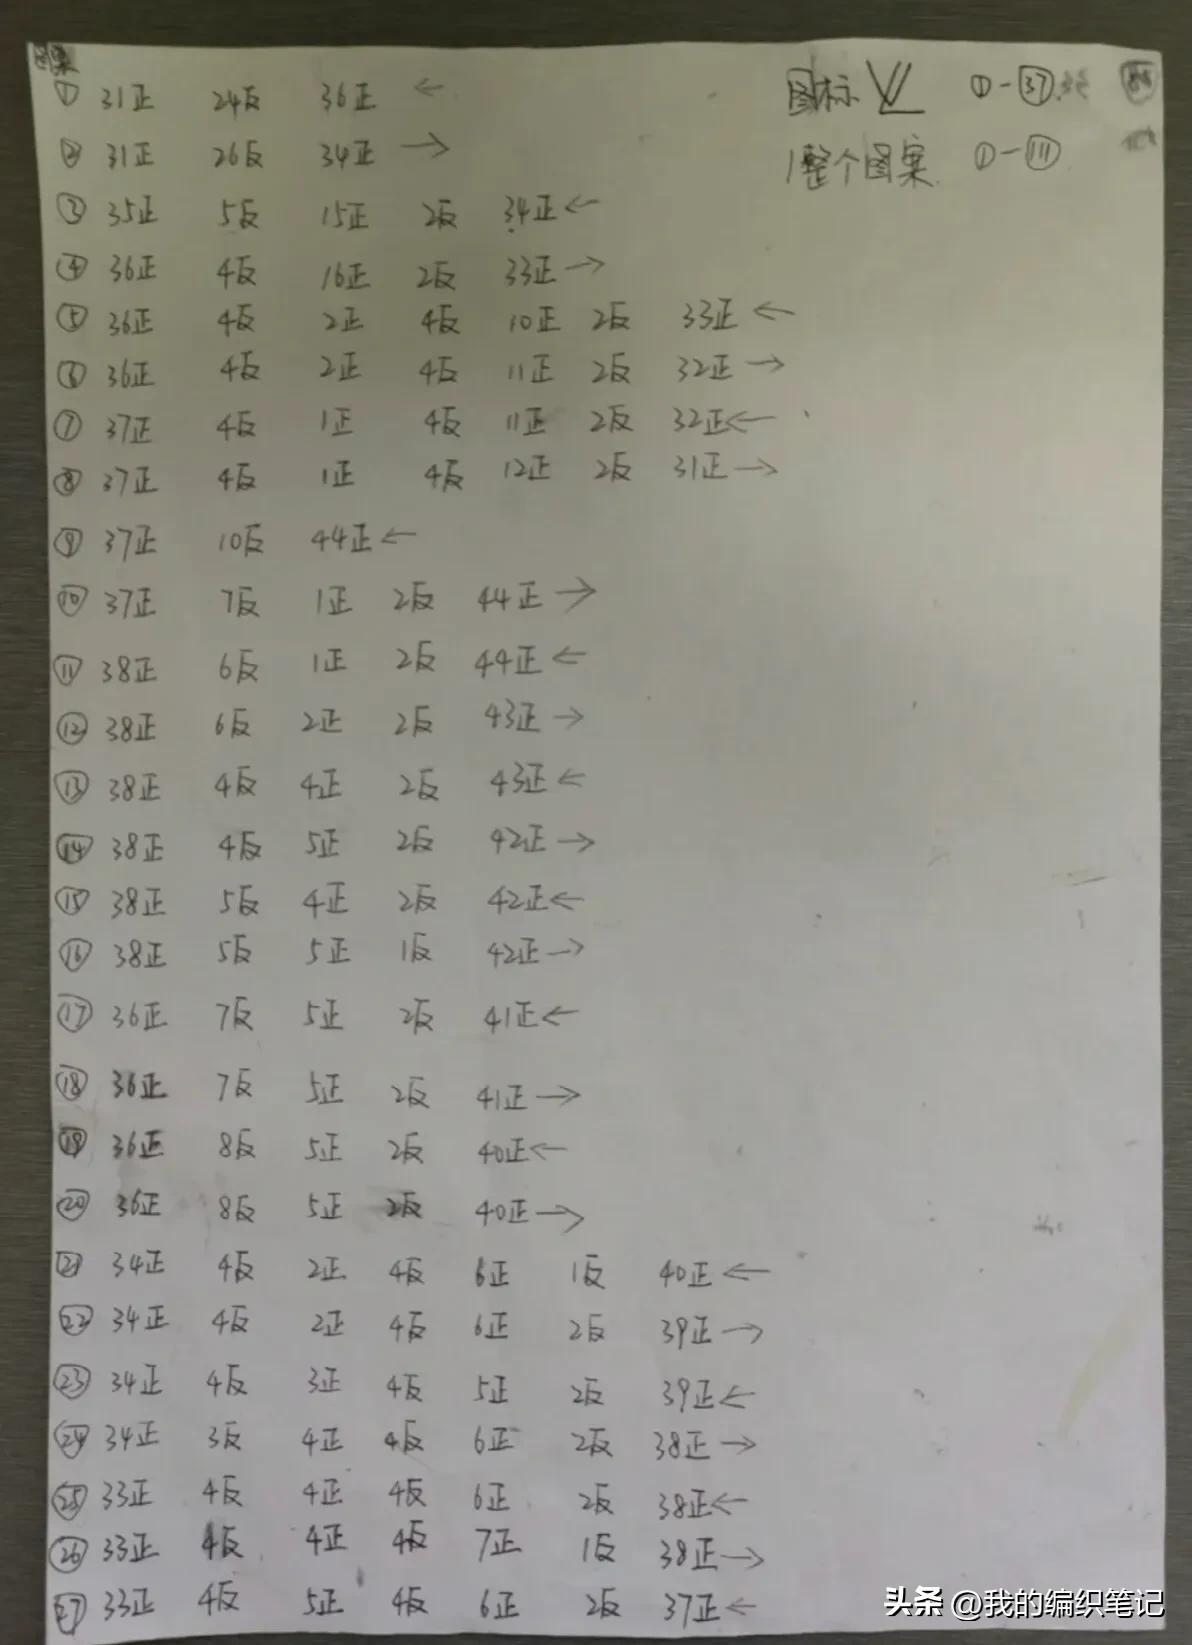 图案
① 31正 24反 36正 ←
② 31正 26反 34正 →
③ 35正 5反 15正 2反 34正 ←
④ 36正 4反 16正 2反 33正 →
⑤ 36正 4反 2正 4反 10正 2反 33正 ←
⑥ 36正 4反 2正 4反 11正 2反 32正 →
⑦ 37正 4反 1正 4反 11正 2反 32正 ←
⑧ 37正 4反 1正 4反 12正 2反 31正 →
⑨ 37正 10反 44正 ←
⑩ 37正 7反 1正 2反 44正 →
⑪ 38正 6反 1正 2反 44正 ←
⑫ 38正 6反 2正 2反 43正 →
⑬ 38正 4反 4正 2反 43正 ←
⑭ 38正 4反 5正 2反 42正 →
⑮ 38正 5反 4正 2反 42正 ←
⑯ 38正 5反 5正 1反 42正 →
⑰ 36正 7反 5正 2反 41正 ←
⑱ 36正 7反 5正 2反 41正 →
⑲ 36正 8反 5正 2反 40正 ←
⑳ 36正 8反 5正 2反 40正 →
㉑ 34正 4反 2正 4反 6正 1反 40正 ←
㉒ 34正 4反 2正 4反 6正 2反 39正 →
㉓ 34正 4反 3正 4反 5正 2反 39正 ←
㉔ 34正 3反 4正 4反 6正 2反 38正 →
㉕ 33正 4反 4正 4反 6正 2反 38正 ←
㉖ 33正 4反 4正 4反 7正 1反 38正 →
㉗ 33正 4反 5正 4反 6正 2反 37正 ←
图标 ①-㊲
1整个图案 ①-(111)
头条 @我的编织笔记